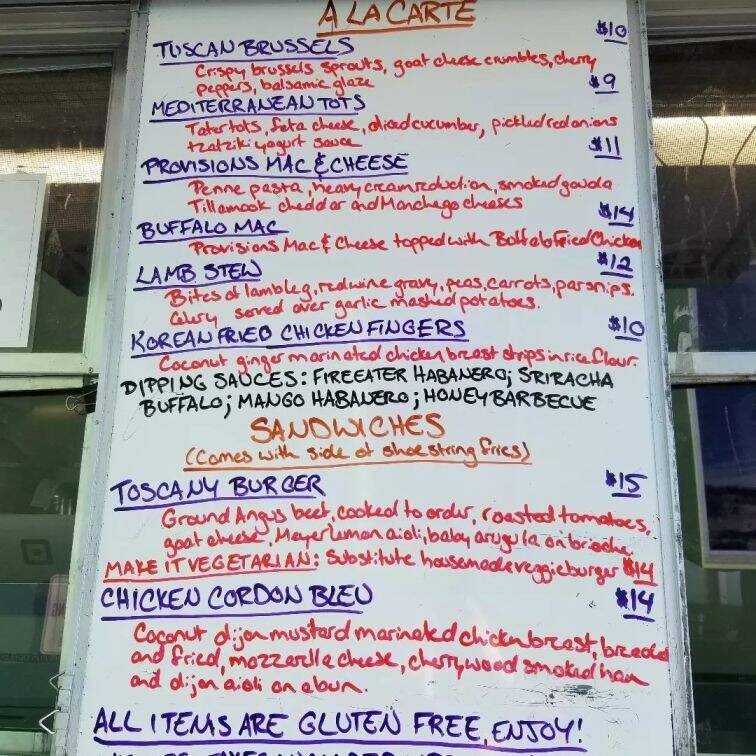 A LA CARTE
TUSCAN BRUSSELS $10
Crispy brussels sprouts, goat cheese crumbles, cherry
peppers, balsamic glaze
MEDITERRANEAN TOTS $9
Tater tots, feta cheese, diced cucumber, pickled red onions
tzatziki yogurt sauce
PROVISIONS MAC & CHEESE $11
Penne pasta, heavy cream reduction, smoked gouda
Tillamook cheddar and Manchego cheeses
BUFFALO MAC $14
Provisions Mac & Cheese topped with Buffalo Fried Chicken
LAMB STEW $12
Bites of lamb leg, red wine gravy, peas, carrots, parsnips.
Celery served over garlic mashed potatoes.
KOREAN FRIED CHICKEN FINGERS $10
Coconut ginger marinated chicken breast strips in rice flour.
DIPPING SAUCES: FIREEATER HABANERO; SRIRACHA
BUFFALO; MANGO HABANERO; HONEY BARBECUE
SANDWICHES
(Comes with side of shoestring fries)
TOSCANY BURGER $15
Ground Angus beef, cooked to order, roasted tomatoes,
goat cheese, Meyer lemon aioli, baby arugula on brioche
MAKE IT VEGETARIAN: Substitute housemade veggie burger $14
CHICKEN CORDON BLEU $14
Coconut dijon mustard marinated chicken breast, breaded
and fried, mozzarella cheese, cherrywood smoked ham
and dijon aioli on a bun.
ALL ITEMS ARE GLUTEN FREE, ENJOY!